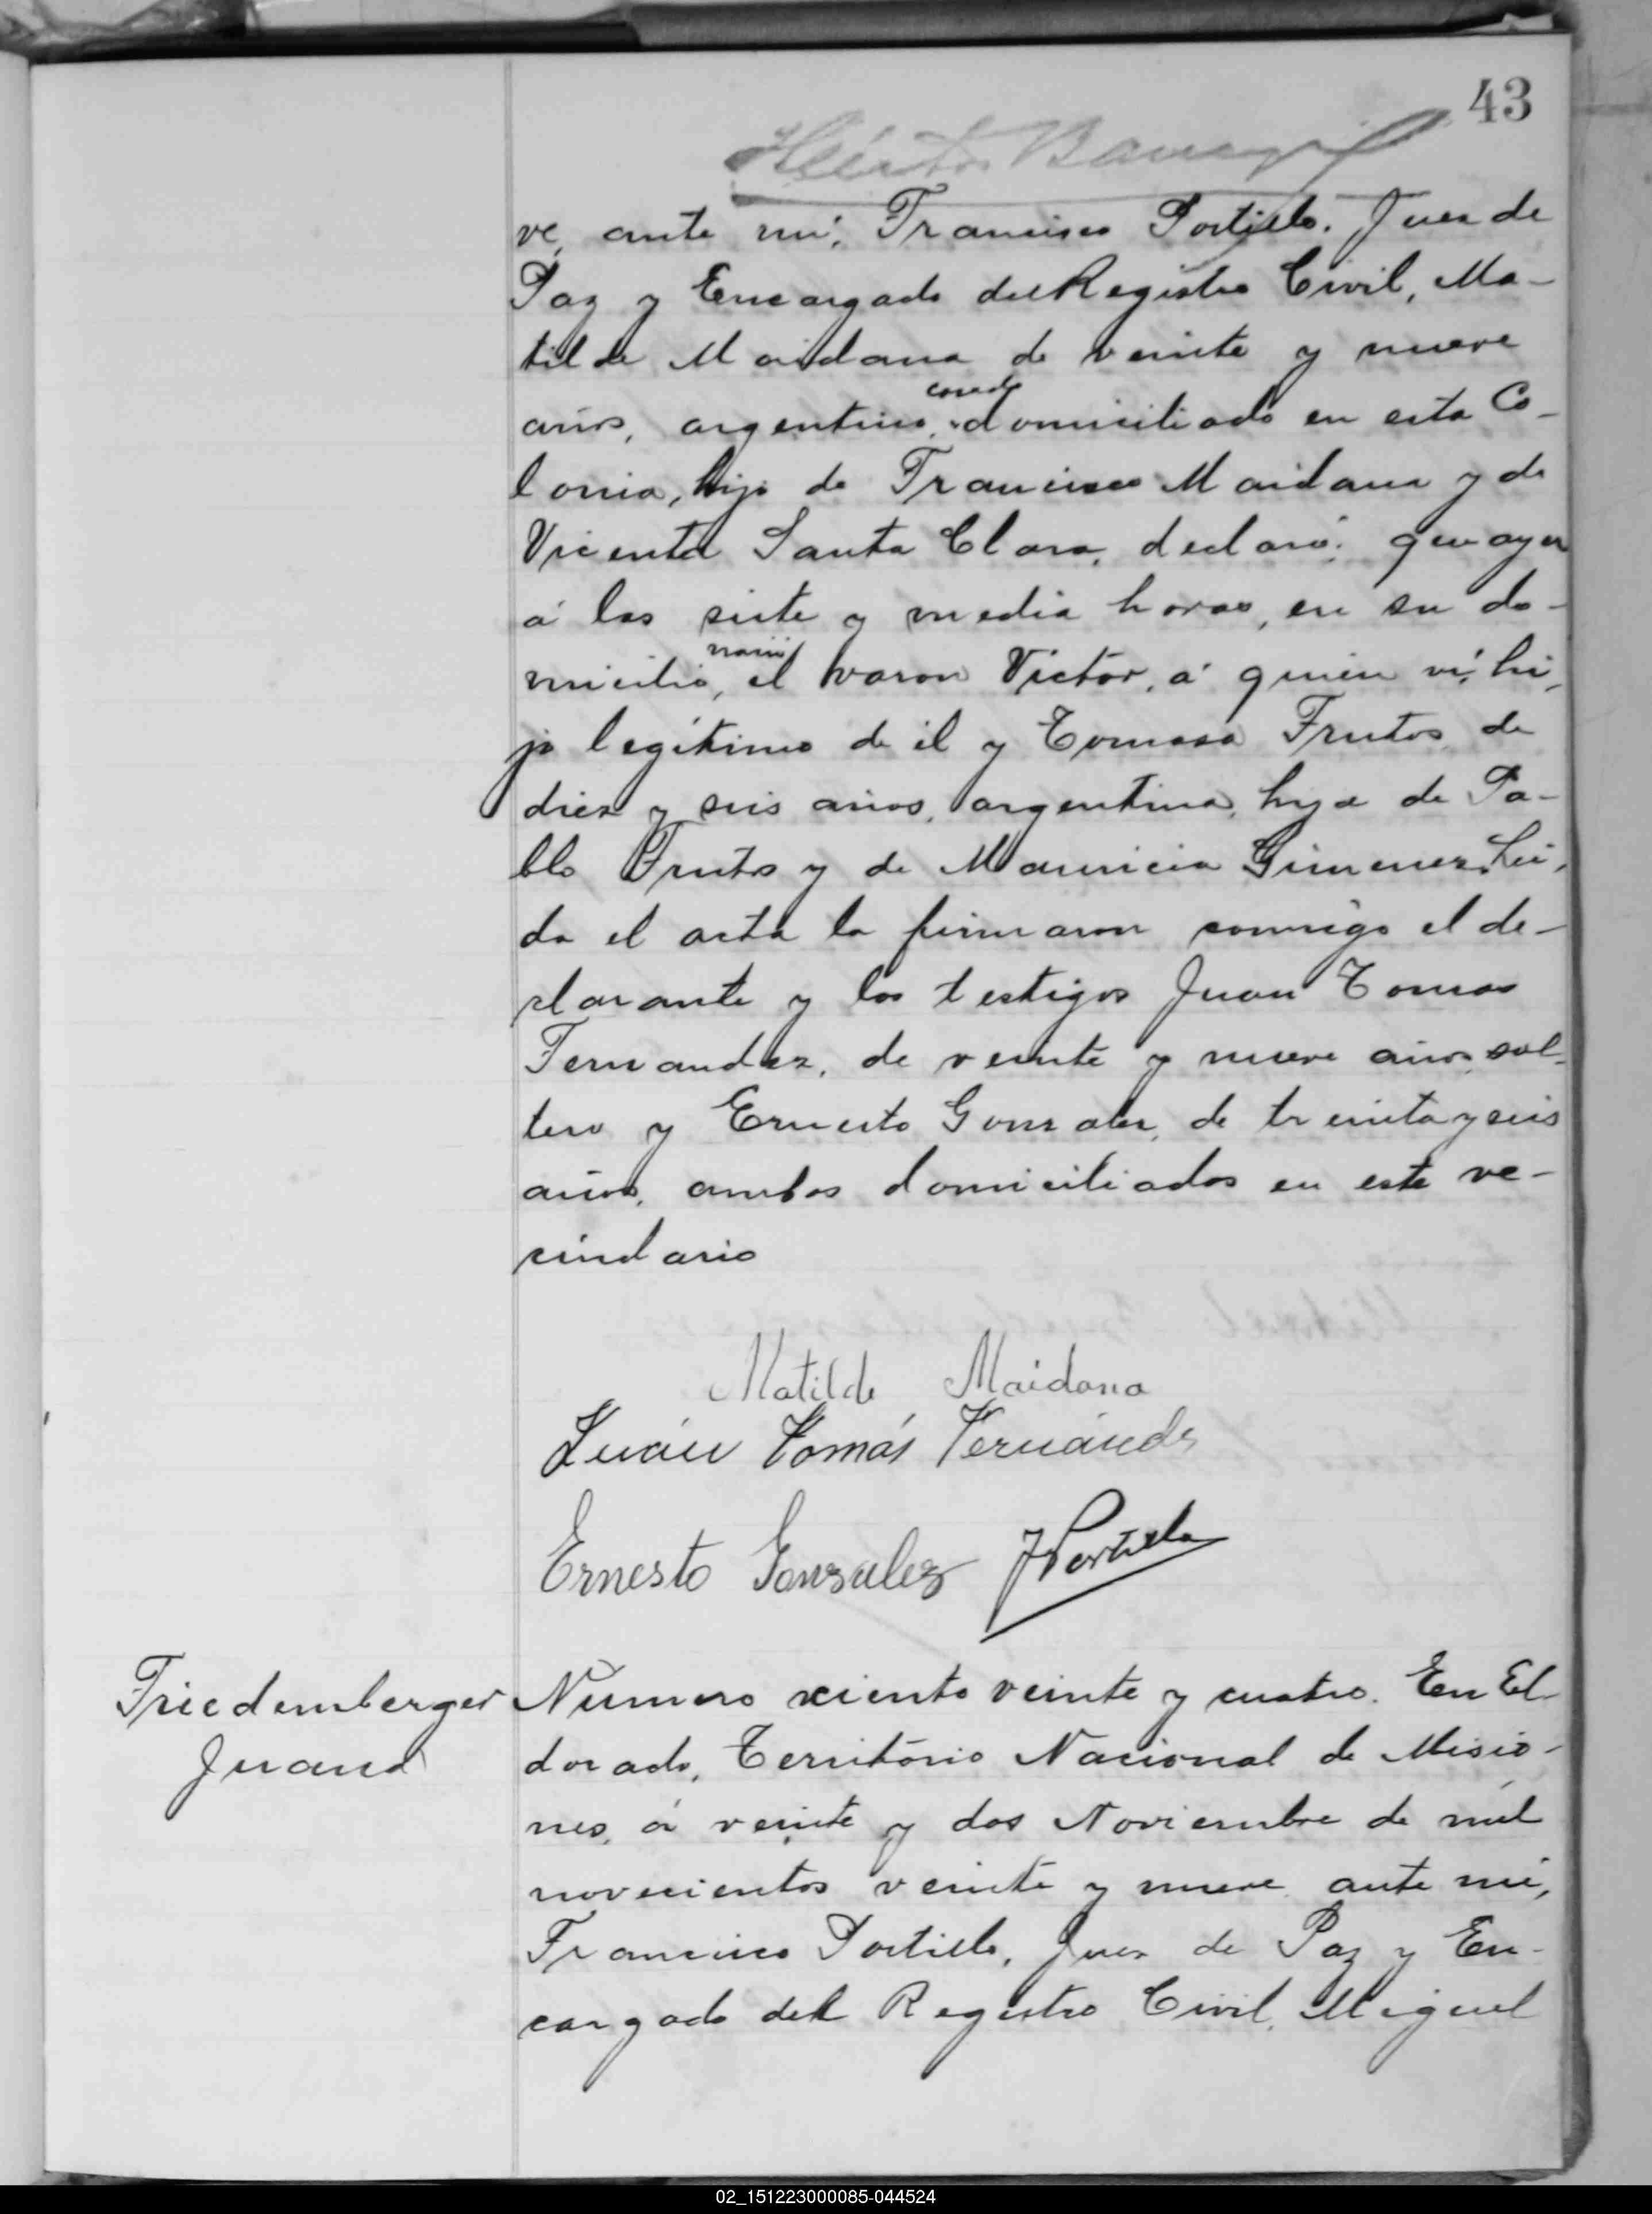 43
ve, ante mí, Francisco Portillo, Juez de
Paz y Encargado del Registro Civil, Ma-
tilde Maidana de veinte y nueve
años, argentino, casado domiciliado en esta Co-
lonia, hijo de Francisco Maidana y de
Vicenta Santa Clara, declaró: que ayer
á las siete y media horas, en su do-
micilio, nació el varon Victor, á quien ví, hi-
jo legítimo de él y Tomasa Frutos de
diez y seis años, argentina, hija de Pa-
blo Frutos y de Mauricia Gimenez. Leí-
da el acta la firmaron conmigo el de-
clarante y los testigos Juan Tomas
Fernandez, de veinte y nueve años, sol-
tero y Ernesto Gonzalez, de treinta y seis
años, ambos domiciliados en este ve-
cindario
Matilde Maidana
Juán Tomás Fernández
Ernesto Gonzalez FPortillo
Friedemberger
Juana
Número ciento veinte y cuatro. En El-
dorado, Territorio Nacional de Misio-
nes, á veinte y dos Noviembre de mil
novecientos veinte y nueve ante mí,
Francisco Portillo, Juez de Paz y En-
cargado del Registro Civil, Miguel
02_151223000085-044524